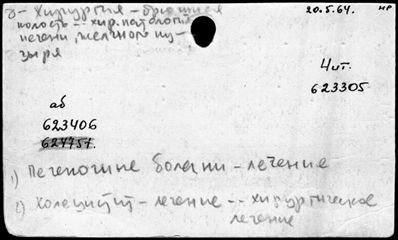 з - Хирургия - брюшная
полость -- хир. патология
печени, желчного пу-
зыря
20.5.64.
НР
Чит.
623305
аб
623406
624757.
1) Печеночные болезни - лечение
2) Холецистит - лечение -- хирургическое
лечение